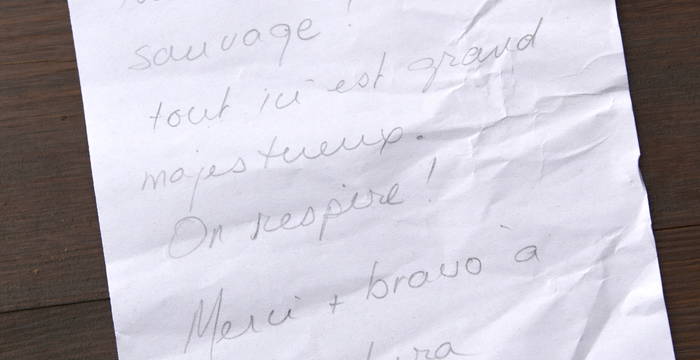 sauvage !
tout ici est grand
majestueux.
On respire !
Merci + bravo à